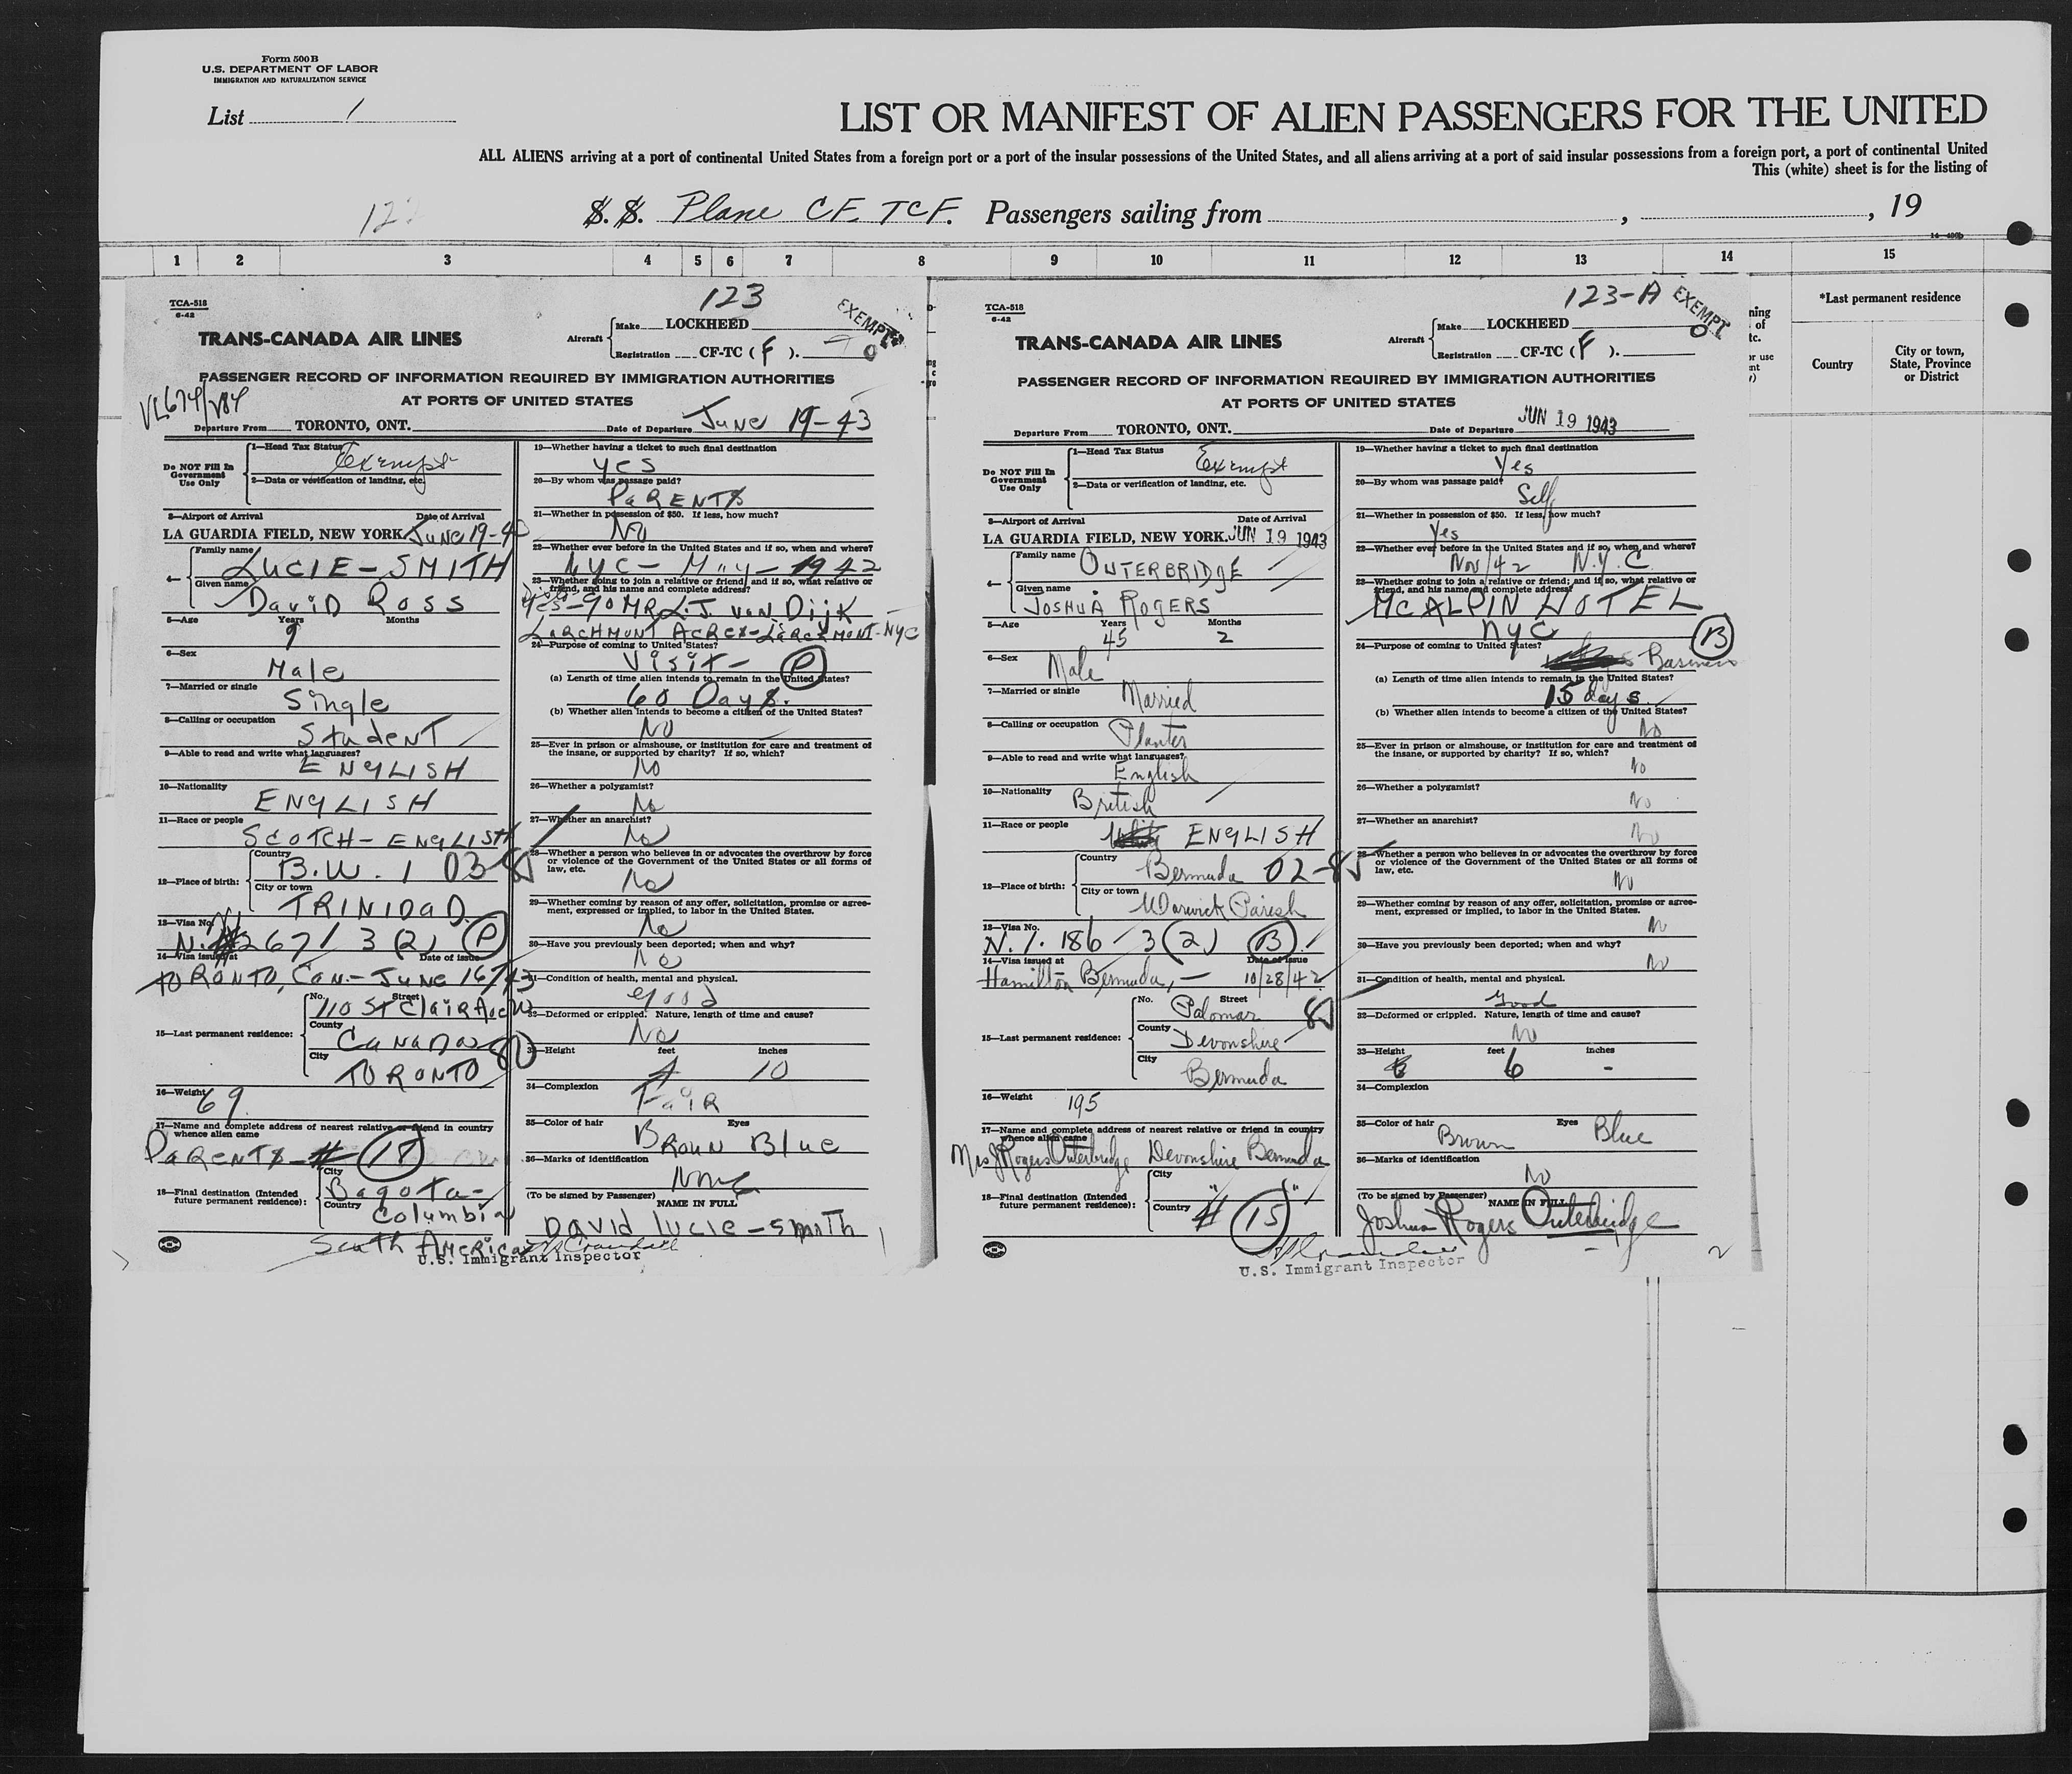 Form 500 B
U.S. DEPARTMENT OF LABOR
IMMIGRATION AND NATURALIZATION SERVICE
List 1
LIST OR MANIFEST OF ALIEN PASSENGERS FOR THE UNITED
ALL ALIENS arriving at a port of continental United States from a foreign port or a port of the insular possessions of the United States, and all aliens arriving at a port of said insular possessions from a foreign port, a port of continental United
This (white) sheet is for the listing of
S.S. Plane CF. TCF. Passengers sailing from , , 19
1 2 3 4 5 6 7 8 9 10 11 12 13 14 15
*Last permanent residence
Country
City or town, State, Province or District
TCA-518
6-42
123
EXEMPT
TRANS-CANADA AIR LINES
Aircraft
Make LOCKHEED
Registration CF-TC (F).
PASSENGER RECORD OF INFORMATION REQUIRED BY IMMIGRATION AUTHORITIES
AT PORTS OF UNITED STATES
Departure From TORONTO, ONT. Date of Departure June 19-43
Do NOT Fill In Government Use Only
1—Head Tax Status Exempt
2—Data or verification of landing, etc.
3—Airport of Arrival Date of Arrival
LA GUARDIA FIELD, NEW YORK. June 19-43
4— Family name LUCIE-SMITH
Given name David Ross
5—Age Years Months
9
6—Sex Male
7—Married or single Single
8—Calling or occupation Student
9—Able to read and write what languages? ENGLISH
10—Nationality ENGLISH
11—Race or people SCOTCH-ENGLISH
12—Place of birth: Country B.W.I 03
City or town TRINIDAD
13—Visa No. 2671 3(2) P
14—Visa issued at Date of issue
TORONTO, Can.- June 16/43
15—Last permanent residence: No. Street 110 St Clair Ave W
County Canada
City TORONTO
16—Weight 69
17—Name and complete address of nearest relative or friend in country whence alien came
Parents- 18
18—Final destination (Intended future permanent residence): City Bagota-
Country Columbia
South America
19—Whether having a ticket to such final destination
yes
20—By whom was passage paid?
Parents
21—Whether in possession of $50. If less, how much?
No
22—Whether ever before in the United States and if so, when and where?
NYC- May- 1942
23—Whether going to join a relative or friend; and if so, what relative or friend, and his name and complete address?
Yes- 90 MR L.J. van Dijk
LARCHMONT ACRES-LARCHMONT-NYC
24—Purpose of coming to United States?
Visit- P
(a) Length of time alien intends to remain in the United States?
60 Days.
(b) Whether alien intends to become a citizen of the United States?
No
25—Ever in prison or almshouse, or institution for care and treatment of the insane, or supported by charity? If so, which?
No
26—Whether a polygamist?
No
27—Whether an anarchist?
No
28—Whether a person who believes in or advocates the overthrow by force or violence of the Government of the United States or all forms of law, etc.
No
29—Whether coming by reason of any offer, solicitation, promise or agreement, expressed or implied, to labor in the United States.
No
30—Have you previously been deported; when and why?
No
31—Condition of health, mental and physical.
good
32—Deformed or crippled. Nature, length of time and cause?
No
33—Height feet inches
4 10
34—Complexion
Fair
35—Color of hair Eyes
Broun Blue
36—Marks of identification
None
(To be signed by Passenger) NAME IN FULL
David lucie-smith
U.S. Immigrant Inspector
TCA-518
6-42
123-A
EXEMPT
TRANS-CANADA AIR LINES
Aircraft
Make LOCKHEED
Registration CF-TC (F).
PASSENGER RECORD OF INFORMATION REQUIRED BY IMMIGRATION AUTHORITIES
AT PORTS OF UNITED STATES
Departure From TORONTO, ONT. Date of Departure JUN 19 1943
Do NOT Fill In Government Use Only
1—Head Tax Status Exempt
2—Data or verification of landing, etc.
3—Airport of Arrival Date of Arrival
LA GUARDIA FIELD, NEW YORK. JUN 19 1943
4— Family name OUTERBRIDGE
Given name JOSHUA ROGERS
5—Age Years Months
45 2
6—Sex Male
7—Married or single Married
8—Calling or occupation Planter
9—Able to read and write what languages? English
10—Nationality British
11—Race or people ENGLISH
12—Place of birth: Country Bermuda 02-85
City or town Warwick Parish
13—Visa No. N.I. 186 3(2) B
14—Visa issued at Date of issue
Hamilton Bermuda,— 10/28/42
15—Last permanent residence: No. Street Palomar
County Devonshire
City Bermuda
16—Weight 195
17—Name and complete address of nearest relative or friend in country whence alien came
Mrs J Rogers Outerbridge Devonshire Bermuda
18—Final destination (Intended future permanent residence): City " "
Country 15
19—Whether having a ticket to such final destination
Yes
20—By whom was passage paid?
Self
21—Whether in possession of $50. If less, how much?
Yes
22—Whether ever before in the United States and if so, when and where?
Nov/42 N.Y.C.
23—Whether going to join a relative or friend; and if so, what relative or friend, and his name and complete address?
McALPIN HOTEL
NYC
24—Purpose of coming to United States?
Business B
(a) Length of time alien intends to remain in the United States?
15 days
(b) Whether alien intends to become a citizen of the United States?
No
25—Ever in prison or almshouse, or institution for care and treatment of the insane, or supported by charity? If so, which?
No
26—Whether a polygamist?
No
27—Whether an anarchist?
No
28—Whether a person who believes in or advocates the overthrow by force or violence of the Government of the United States or all forms of law, etc.
No
29—Whether coming by reason of any offer, solicitation, promise or agreement, expressed or implied, to labor in the United States.
No
30—Have you previously been deported; when and why?
No
31—Condition of health, mental and physical.
Good
32—Deformed or crippled. Nature, length of time and cause?
No
33—Height feet inches
6 -
34—Complexion
35—Color of hair Eyes
Brown Blue
36—Marks of identification
No
(To be signed by Passenger) NAME IN FULL
Joshua Rogers Outerbridge
U.S. Immigrant Inspector
2